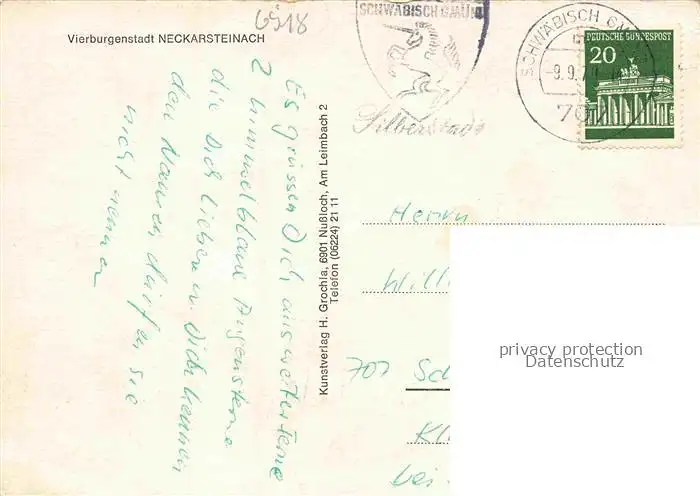 6918
Vierburgenstadt NECKARSTEINACH
SCHWÄBISCH GMÜND
Silberstadt
SCHWÄBISCH GMÜND
-9.9.7
707
DEUTSCHE BUNDESPOST
20
Es grüssen Dich aus weiter Ferne
2 himmelblaue Augensterne
die Dich lieben u. Dich kennen
den Namen dürfen sie
nicht nennen
Kunstverlag H. Grochla, 6901 Nußloch, Am Leimbach 2
Telefon (06224) 21 11
Herrn
Willi
707 Sch
Kl
bei
privacy protection
Datenschutz